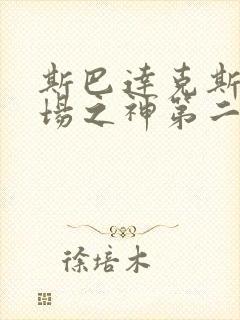 斯巴达克斯
场之神第二
徐培木